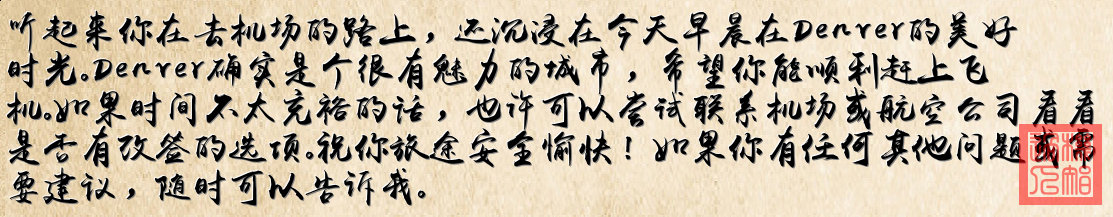 听起来你在去机场的路上，还沉浸在今天早晨在Denver的美好
时光。Denver确实是个很有魅力的城市，希望你能顺利赶上飞
机。如果时间不太充裕的话，也许可以尝试联系机场或航空公司看看
是否有改签的选项。祝你旅途安全愉快！如果你有任何其他问题或需
要建议，随时可以告诉我。